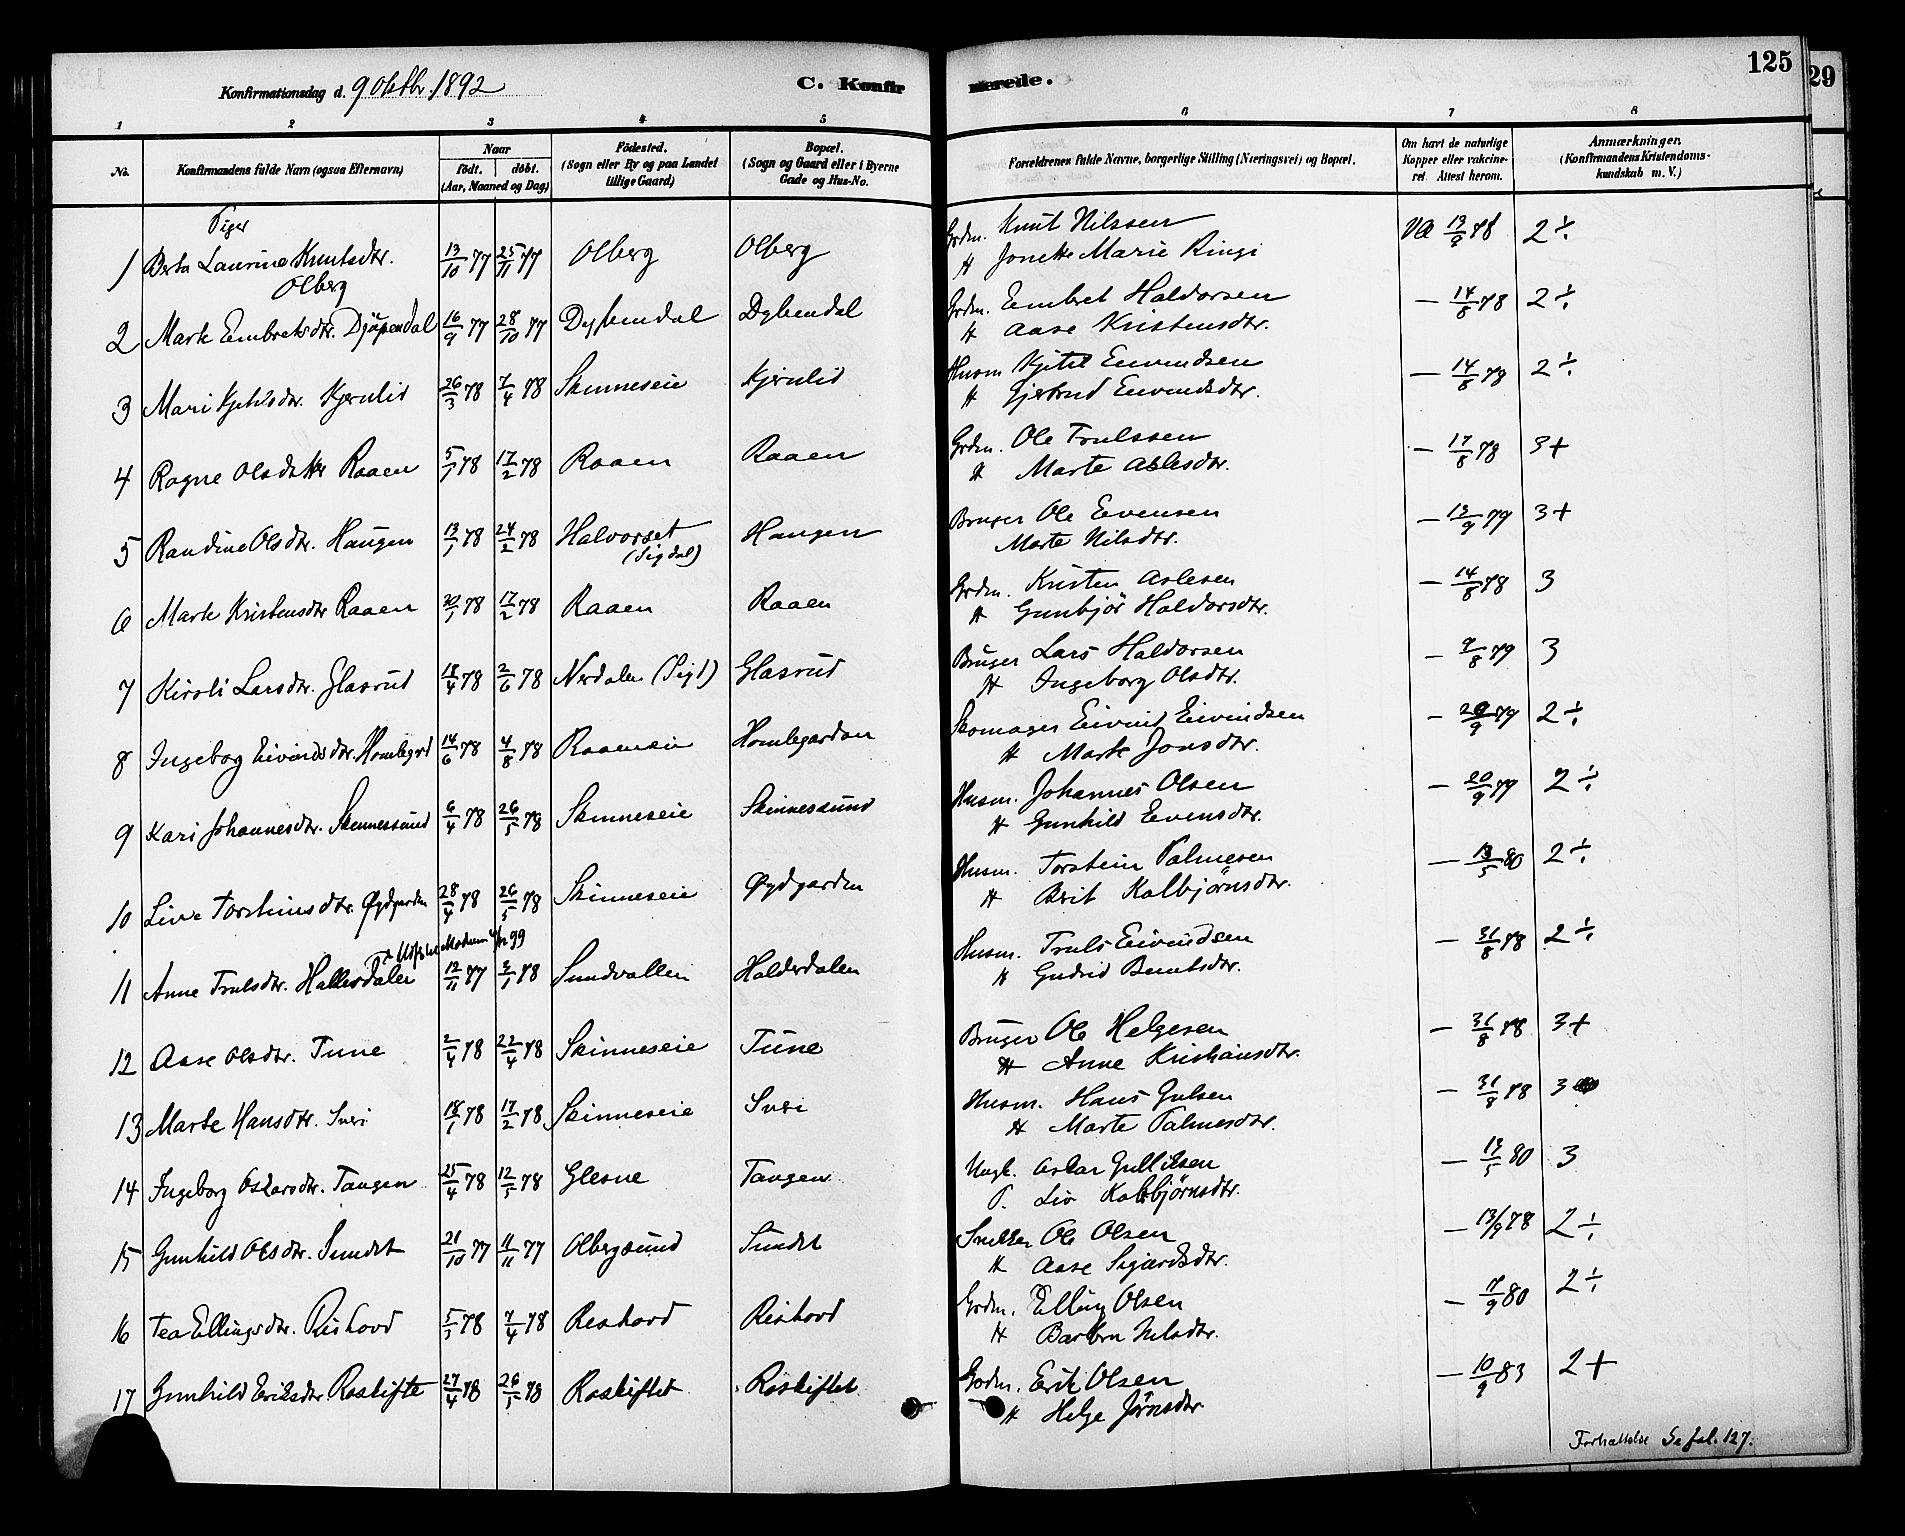 125
29
Konfirmationsdag d. 9 Oktbr. 1892
C. Konfirmerede.
1 2 3 4 5 6 7 8
No.
Konfirmandens fulde Navn (ogsaa Efternavn)
Naar
født. døbt.
(Aar, Maaned og Dag)
Fødested.
(Sogn eller By og paa Landet
tillige Gaard)
Bopæl.
(Sogn og Gaard eller i Byerne
Gade og Hus-No.
Forældrenes fulde Navne, borgerlige Stilling (Næringsvei) og Bopæl.
Om havt de naturlige
Kopper eller vakcine-
ret. Attest herom.
Anmærkninger.
(Konfirmandens Kristendoms-
kundskab m. V.)
Piger
1 Berta Laurine Knutsdtr. Olberg 13/10 77 25/11 77 Olberg Olberg Grdm. Knut Nilssen
H Jonette Marie Ringi 13/9 78 2 ÷
2 Marte Embretsdtr. Djupendal 16/9 77 28/10 77 Dybendal Dybendal Grdm. Embret Haldorsen
H Aase Kristensdtr. — 14/8 78 2 ÷
3 Mari Kjetilsdtr. Kjernlid 26/3 78 7/4 78 Skinneseie Kjernlid Husm Kjetil Eivendsen
H Gjertrud Eivendsdtr. — 14/8 78 2 ÷
4 Ragne Olsdatter Raaen 5/1 78 17/2 78 Raaen Raaen Grdm. Ole Trulssen
H Marte Aslesdtr. — 17/8 78 3+
5 Randine Olsdtr. Haugen 13/1 78 24/2 78 Halvorset (Sigdal) Haugen Bruger Ole Evensen
Marte Nilsdtr. — 13/9 79 3+
6 Marte Kristensdtr Raaen 20/1 78 17/2 78 Raaen Raaen Grdm. Kristen Aslesen
H Gunbjør Haldorsdtr. — 14/8 78 3
7 Kirsti Larsdtr. Glasrud 18/4 78 2/6 78 Nerdalen (Sigd) Glasrud Bruger Lars Haldorsen
H Ingeborg Olsdtr. — 9/8 79 3
8 Ingebog Eivindsdtr. Homlegrd 14/6 78 4/8 78 Raaeneie Homlegardon Skomager Eivind Eivindsen
H Marte Jonsdtr. — 20/9 79 2 ÷
9 Kari Johannesdtr. Skinnessund 6/4 78 26/5 78 Skinneseie Skinnessund Husm. Johannes Olsen
H Gunhild Evensdtr. — 20/9 79 2 ÷
10 Live Torsteinsdtr. Øydgarden 28/4 78 26/5 78 Skinneseie Øydgarden Husm. Torstein Palmesen
H Brit Kolbjørnsdtr. — 13/5 80 2 ÷
Modum 99
11 Anne Trulsdtr. Hallerdalen 12/11 77 /1 78 Sundvollen Halderdalen Husm. Truls Eivindsen
H Gudrid Berntsdtr. — 31/8 78 2 ÷
12 Aase Olsdtr. Tune 2/4 78 22/4 78 Skinneseie Tune Bruger Ole Helgesen
H Anne Kristiansdtr. — 31/8 78 3+
13 Marte Hansdtr. Sveri 18/1 78 17/2 78 Skinneseie Sveri Husm. Hans Gulsen
H Marte Palmesdtr. — 31/8 78 3
14 Ingeborg Oskarsdtr. Tangen 25/4 78 12/5 78 Glesne Tangen Ungk. Oskar Gulliksen
P. Liv Kolbjørnsdtr. — 13/5 80 3
15 Gunhild Olsdtr. Sundet 21/10 77 11/11 77 Olbergsund Sundet Snekker Ole Olsen
H Aase Sigurdsdtr. — 13/9 78 2 ÷
16 Tea Ellingsdtr. Rishovd 5/3 78 7/4 78 Reshovd Rishovd Grdm. Elling Olsen
H Barbra Nilsdtr. — 7/9 80 2 ÷
17 Gunhild Eriksdtr Roskifte 27/4 78 26/5 78 Roskiftet Roskiftet Grdm. Erik Olsen
H Helge Jörnsdtr. — 10/9 83 2 +
Forhattelse Se fol. 127.